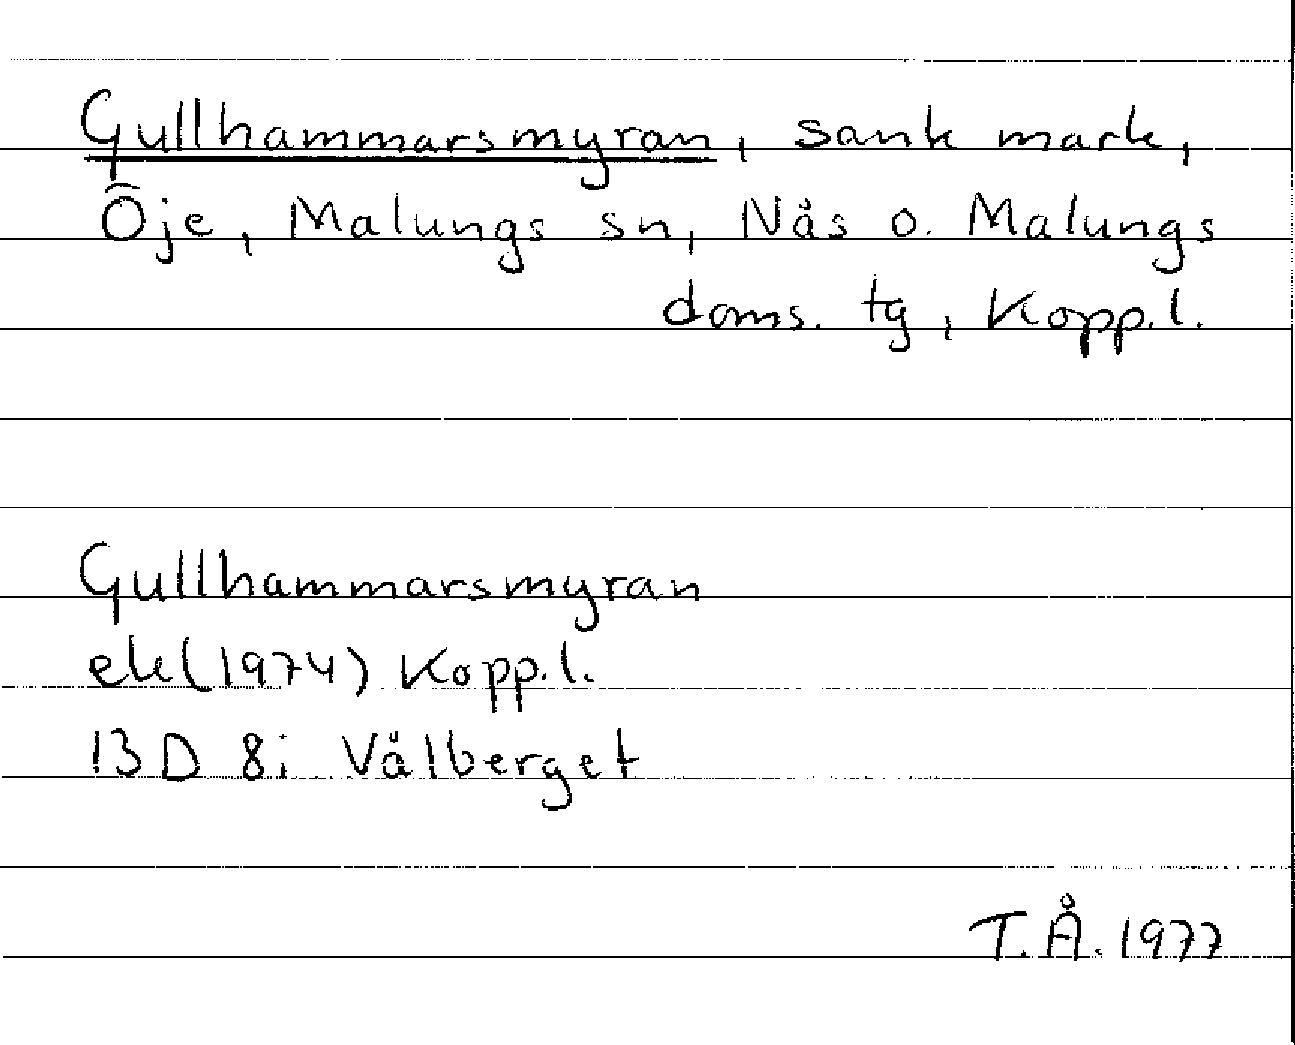 Gullhammarsmyran, sank mark,
Öje, Malungs sn, Nås o. Malungs
doms. tg, Kopp.l.
Gullhammarsmyran
ek(1974) Kopp.l.
13D 8i Vålberget
T.Å. 1977